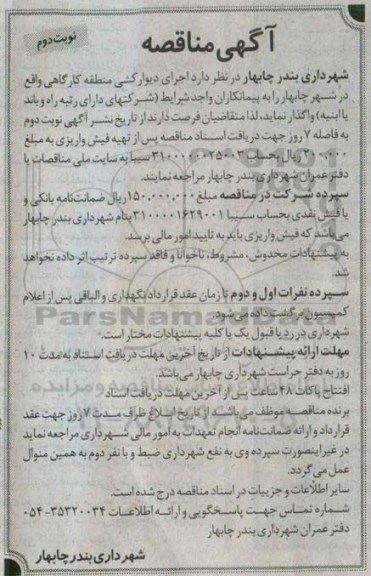 نوبت دوم
آگهی مناقصه
شهرداری بندر چابهار در نظر دارد اجرای دیوارکشی منطقه کارگاهی واقع
در شهر چابهار را به پیمانکاران واجد شرایط (شرکتهای دارای رتبه راه و باند
یا ابنیه) واگذار نماید، لذا متقاضیان فرصت دارند از تاریخ نشر آگهی نوبت دوم
به فاصله ۷ روز جهت دریافت اسناد مناقصه پس از تهیه فیش واریزی به مبلغ
ریال بحساب سیبا به سایت ملی مناقصات یا
دفتر عمران شهرداری بندر چابهار مراجعه نمایند.
سپرده شرکت در مناقصه مبلغ ۱۵۰,۰۰۰,۰۰۰ ریال ضمانت‌نامه بانکی و
یا فیش نقدی بحساب سیبا ۳۱۰۰۰۰۱۶۲۹۰۰۱ بنام شهرداری بندر چابهار
می‌باشد که فیش واریزی باید به تایید امور مالی برسد.
به پیشنهادات مخدوش، مشروط، ناخوانا و فاقد سپرده ترتیب اثر داده نخواهد
شد.
سپرده نفرات اول و دوم تا زمان عقد قرارداد نگهداری و الباقی پس از اعلام
کمیسیون برگشت داده می‌شود.
شهرداری در رد یا قبول یک یا کلیه پیشنهادات مختار است.
مهلت ارائه پیشنهادات از تاریخ آخرین مهلت دریافت اسناد به مدت ۱۰
روز به دفتر حراست شهرداری چابهار می‌باشد.
افتتاح پاکات ۴۸ ساعت پس از آخرین مهلت دریافت اسناد
برنده مناقصه موظف می‌باشد از تاریخ ابلاغ ظرف مدت ۷ روز جهت عقد
قرارداد و ارائه ضمانت‌نامه انجام تعهدات به امور مالی شهرداری مراجعه نماید
در غیر اینصورت سپرده وی به نفع شهرداری ضبط و با نفر دوم به همین منوال
عمل می‌گردد.
سایر اطلاعات و جزییات در اسناد مناقصه درج شده است.
شماره تماس جهت پاسخگویی و ارائه اطلاعات ۳۵۳۲۰۰۳۴-۰۵۴
دفتر عمران شهرداری بندر چابهار
شهرداری بندر چابهار